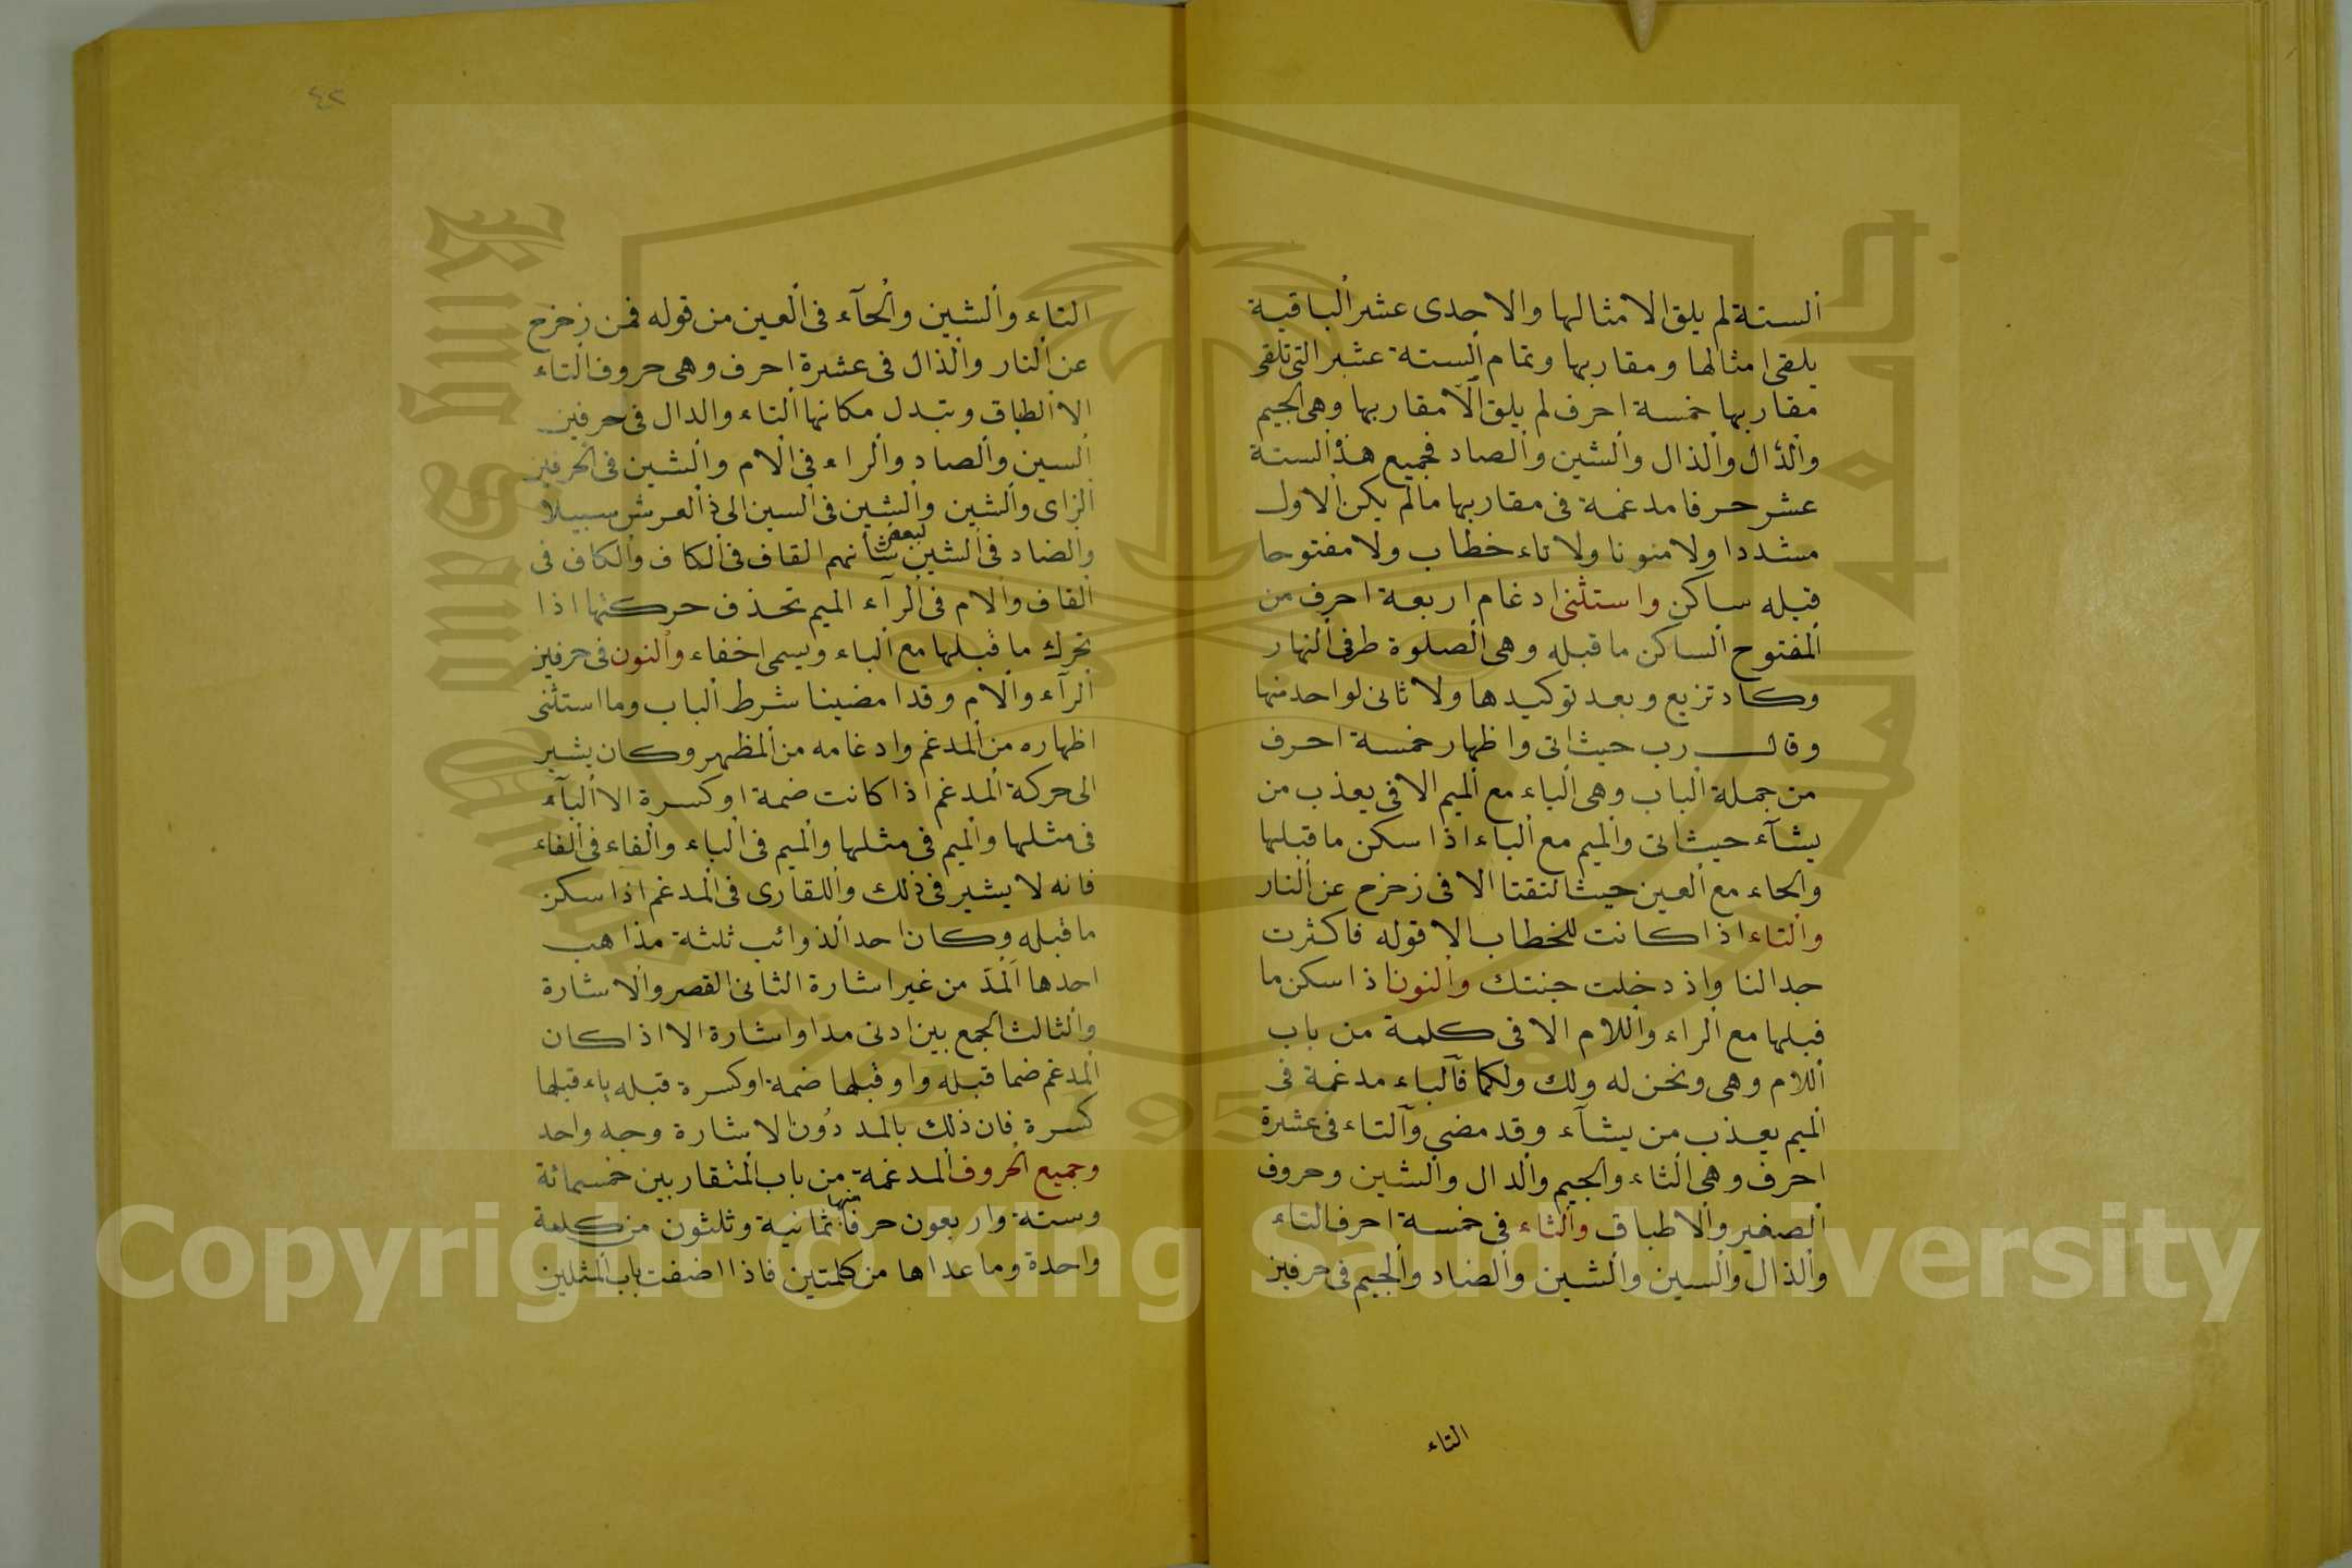 الستة لم يلق الا مثالها والاحدى عشر الباقية
يلقى مثالها ومقاربها وتمام الستة عشر التى تلقى
مقاربها خمسة احرف لم يلق الا مقاربها وهى الجيم
والدال والذال والشين والصاد فجميع هذه الستة
عشر حرفا مدغمة فى مقاربها مالم يكن الاول
مشددا ولا منونا ولا تاء خطاب ولا مفتوحا
قبله ساكن واستثنى ادغام اربعة احرف من
المفتوح الساكن ما قبله وهى الصلوة طرفى النهار
وكاد تزيغ وبعد توكيدها ولا ثانى لواحد منها
وقال رب حيث اتى واظهار خمسة احرف
من جملة الباب وهى الباء مع الميم الا فى يعذب من
يشآء حيث اتى والميم مع الباء اذا سكن ما قبلها
والحاء مع العين حيث التقتا الا فى زحزح عن النار
والتاء اذا كانت للخطاب الا قوله فاكثرت
جدالنا واذ دخلت جنتك والنون اذا سكن ما
قبلها مع الراء واللام الا فى كلمة من باب
اللام وهى ونحن له ولك ولكما فالباء مدغمة فى
الميم يعذب من يشآء وقد مضى والتاء فى عشرة
احرف وهى الثاء والجيم والدال والشين وحروف
الصفير والاطباق والثاء فى خمسة احرف التاء
والذال والسين والشين والضاد والجيم فى حرفين
التاء
٤٣
التاء والشين والحآء فى العين من قوله فمن زحزح
عن النار والذال فى عشرة احرف وهى حروف التاء
الا الطباق وتبدل مكانها التاء والدال فى حرفين
السين والصاد والراء فى الام والشين فى الحرفين
الزاى والشين والشين فى السين الى ذى العرش سبيلا
والضاد فى الشين لبعض شأنهم القاف فى الكاف والكاف فى
القاف والام فى الرآء الميم تحذف حركتها اذا
تحرك ما قبلها مع الباء ويسمى اخفاء والنون فى حرفين
الرآء والام وقد امضينا شرط الباب وما استثنى
اظهاره من المدغم وادغامه من المظهر وكان يشير
الى حركة المدغم اذا كانت ضمة او كسرة الا البآء
فى مثلها والميم فى مثلها والميم فى الباء والفاء فى الفاء
فانه لا يشير فى ذلك واللقارى فى المدغم اذا سكن
ما قبله وكان احد الذوائب ثلثة مذاهب
احدها المد من غير اشارة الثانى القصر والاشارة
والثالث الجمع بين ادنى مد واشارة الا اذا كان
المدغم ضما قبله واو قبلها ضمة او كسرة قبله ياء قبلها
كسرة فان ذلك بالمد دون الاشارة وجه واحد
وجميع الحروف المدغمة من باب المتقاربين خمسمائة
وستة واربعون حرفا منها ثمانية وثلثون من كلمة
واحدة وما عداها من كلمتين فاذا اضفت باب المثلين
Copyright © King Saud University
King Saud University
1957